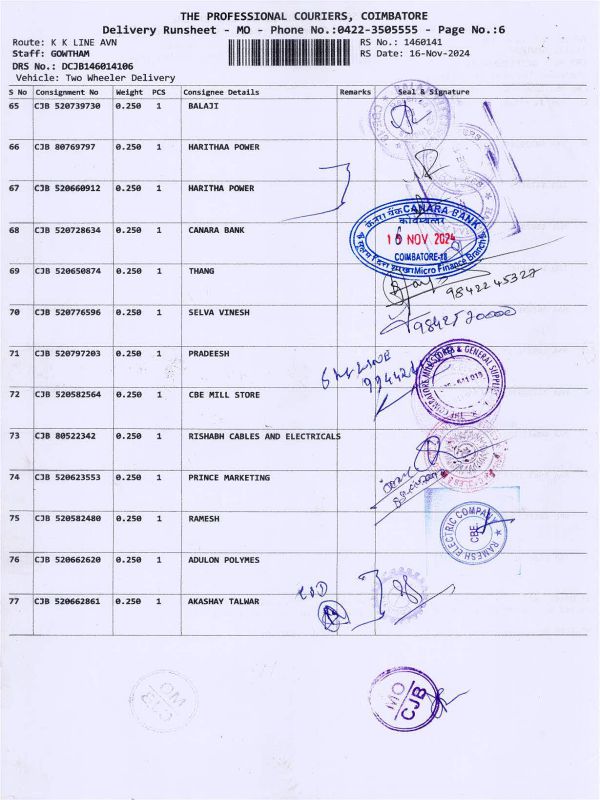 THE PROFESSIONAL COURIERS, COIMBATORE
Delivery Runsheet - MO - Phone No.:0422-3505555 - Page No.:6
Route: K K LINE AVN RS No.: 1460141
Staff: GOWTHAM RS Date: 16-Nov-2024
DRS No.: DCJB146014106
Vehicle: Two Wheeler Delivery
S No Consignment No Weight PCS Consignee Details Remarks Seal & Signature
65 CJB 520739730 0.250 1 BALAJI
66 CJB 80769797 0.250 1 HARITHAA POWER
67 CJB 520660912 0.250 1 HARITHA POWER
68 CJB 520728634 0.250 1 CANARA BANK
केनरा बैंक CANARA BANK
16 NOV 2024
COIMBATORE-18
Micro Finance Branch
69 CJB 520650874 0.250 1 THANG
9842245327
70 CJB 520776596 0.250 1 SELVA VINESH
71 CJB 520797203 0.250 1 PRADEESH
72 CJB 520582564 0.250 1 CBE MILL STORE
73 CJB 80522342 0.250 1 RISHABH CABLES AND ELECTRICALS
74 CJB 520623553 0.250 1 PRINCE MARKETING
75 CJB 520582480 0.250 1 RAMESH
RAMESH ELECTRIC COMPANY
CBE
76 CJB 520662620 0.250 1 ADULON POLYMES
77 CJB 520662861 0.250 1 AKASHAY TALWAR
MO
CJB
MO
CJB